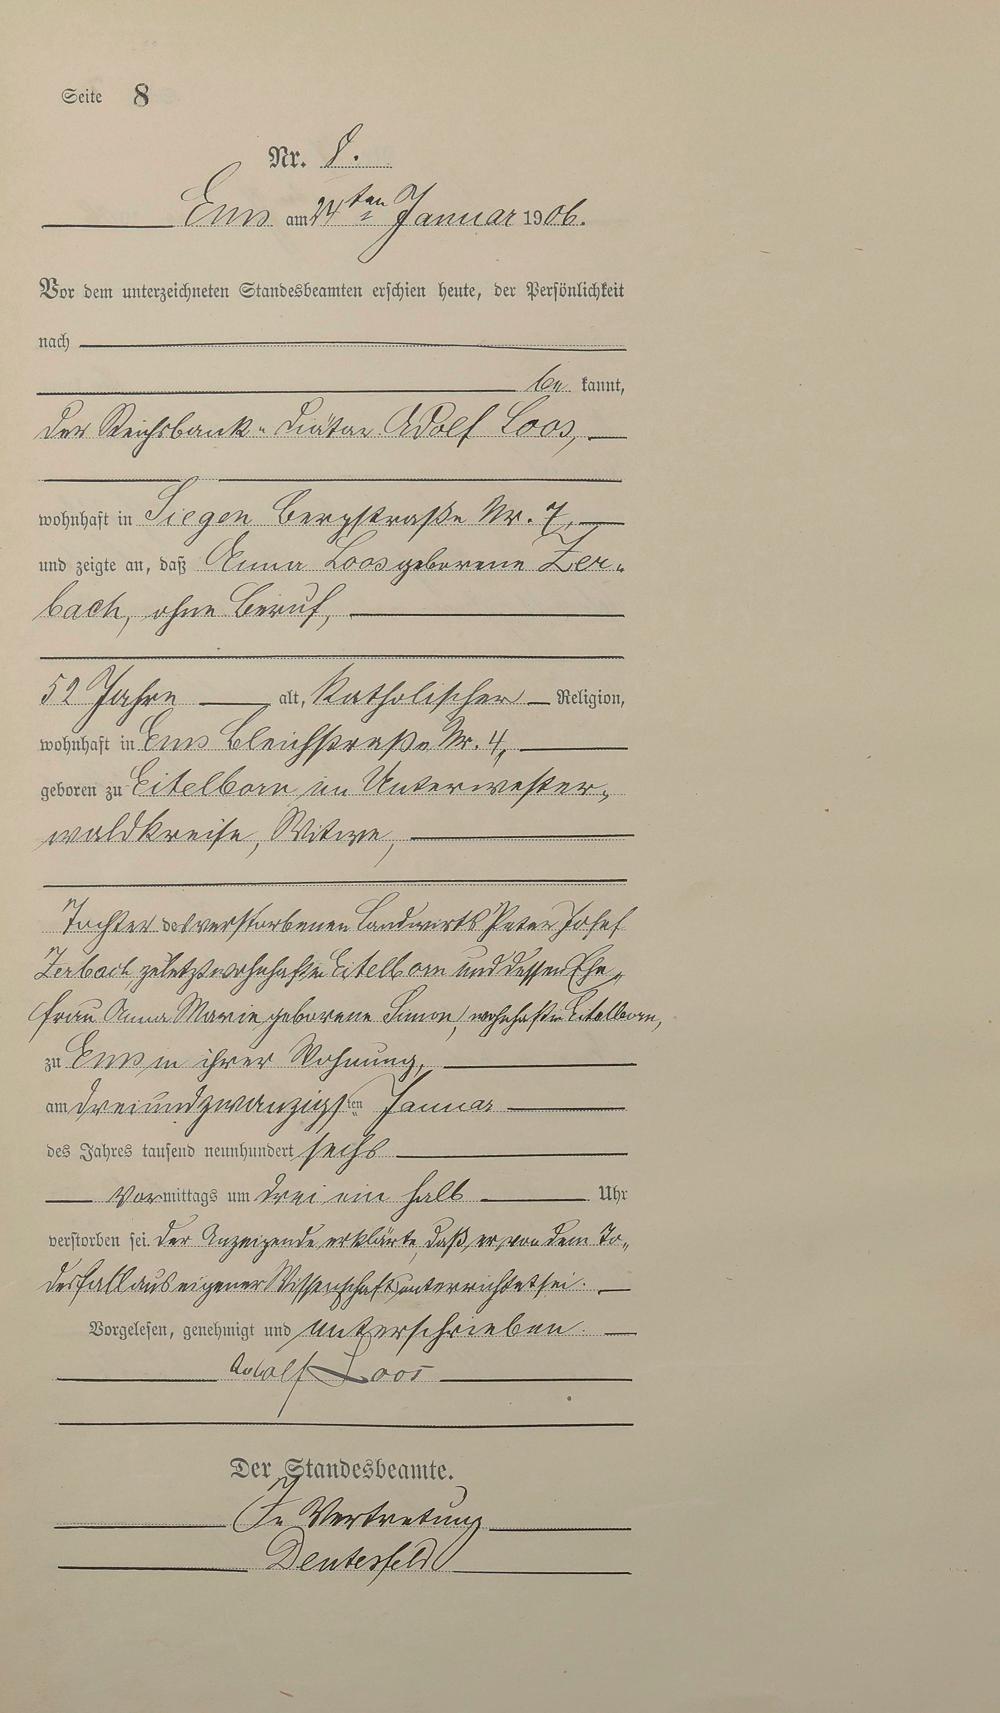 Seite 8
Nr. 8.
Ems am 24ten Januar 1906.
Vor dem unterzeichneten Standesbeamten erschien heute, der Persönlichkeit
nach
be kannt,
der Reichsbank-Diätar Adolf Loos,
wohnhaft in Siegen Bergstraße Nr. 7,
und zeigte an, daß Anna Loos geborene Zer-
bach, ohne Beruf,
52 Jahre alt, katholischer Religion,
wohnhaft in Ems Bleichstraße Nr. 4,
geboren zu Eitelborn im Unterwester-
waldkreise, Witwe,
Tochter des verstorbenen Landwirts Peter Josef
Zerbach, zuletzt wohnhaft in Eitelborn und dessen Ehe-
frau Anna Maria geborene Simon, wohnhaft in Eitelborn,
zu Ems in ihrer Wohnung,
am dreiundzwanzigsten Januar
des Jahres tausend neunhundert sechs
Vormittags um drei ein halb Uhr
verstorben sei. Der Anzeigende erklärte, daß er von dem To-
desfall aus eigener Wissenschaft unterrichtet sei.
Vorgelesen, genehmigt und unterschrieben.
Adolf Loos
Der Standesbeamte.
In Vertretung